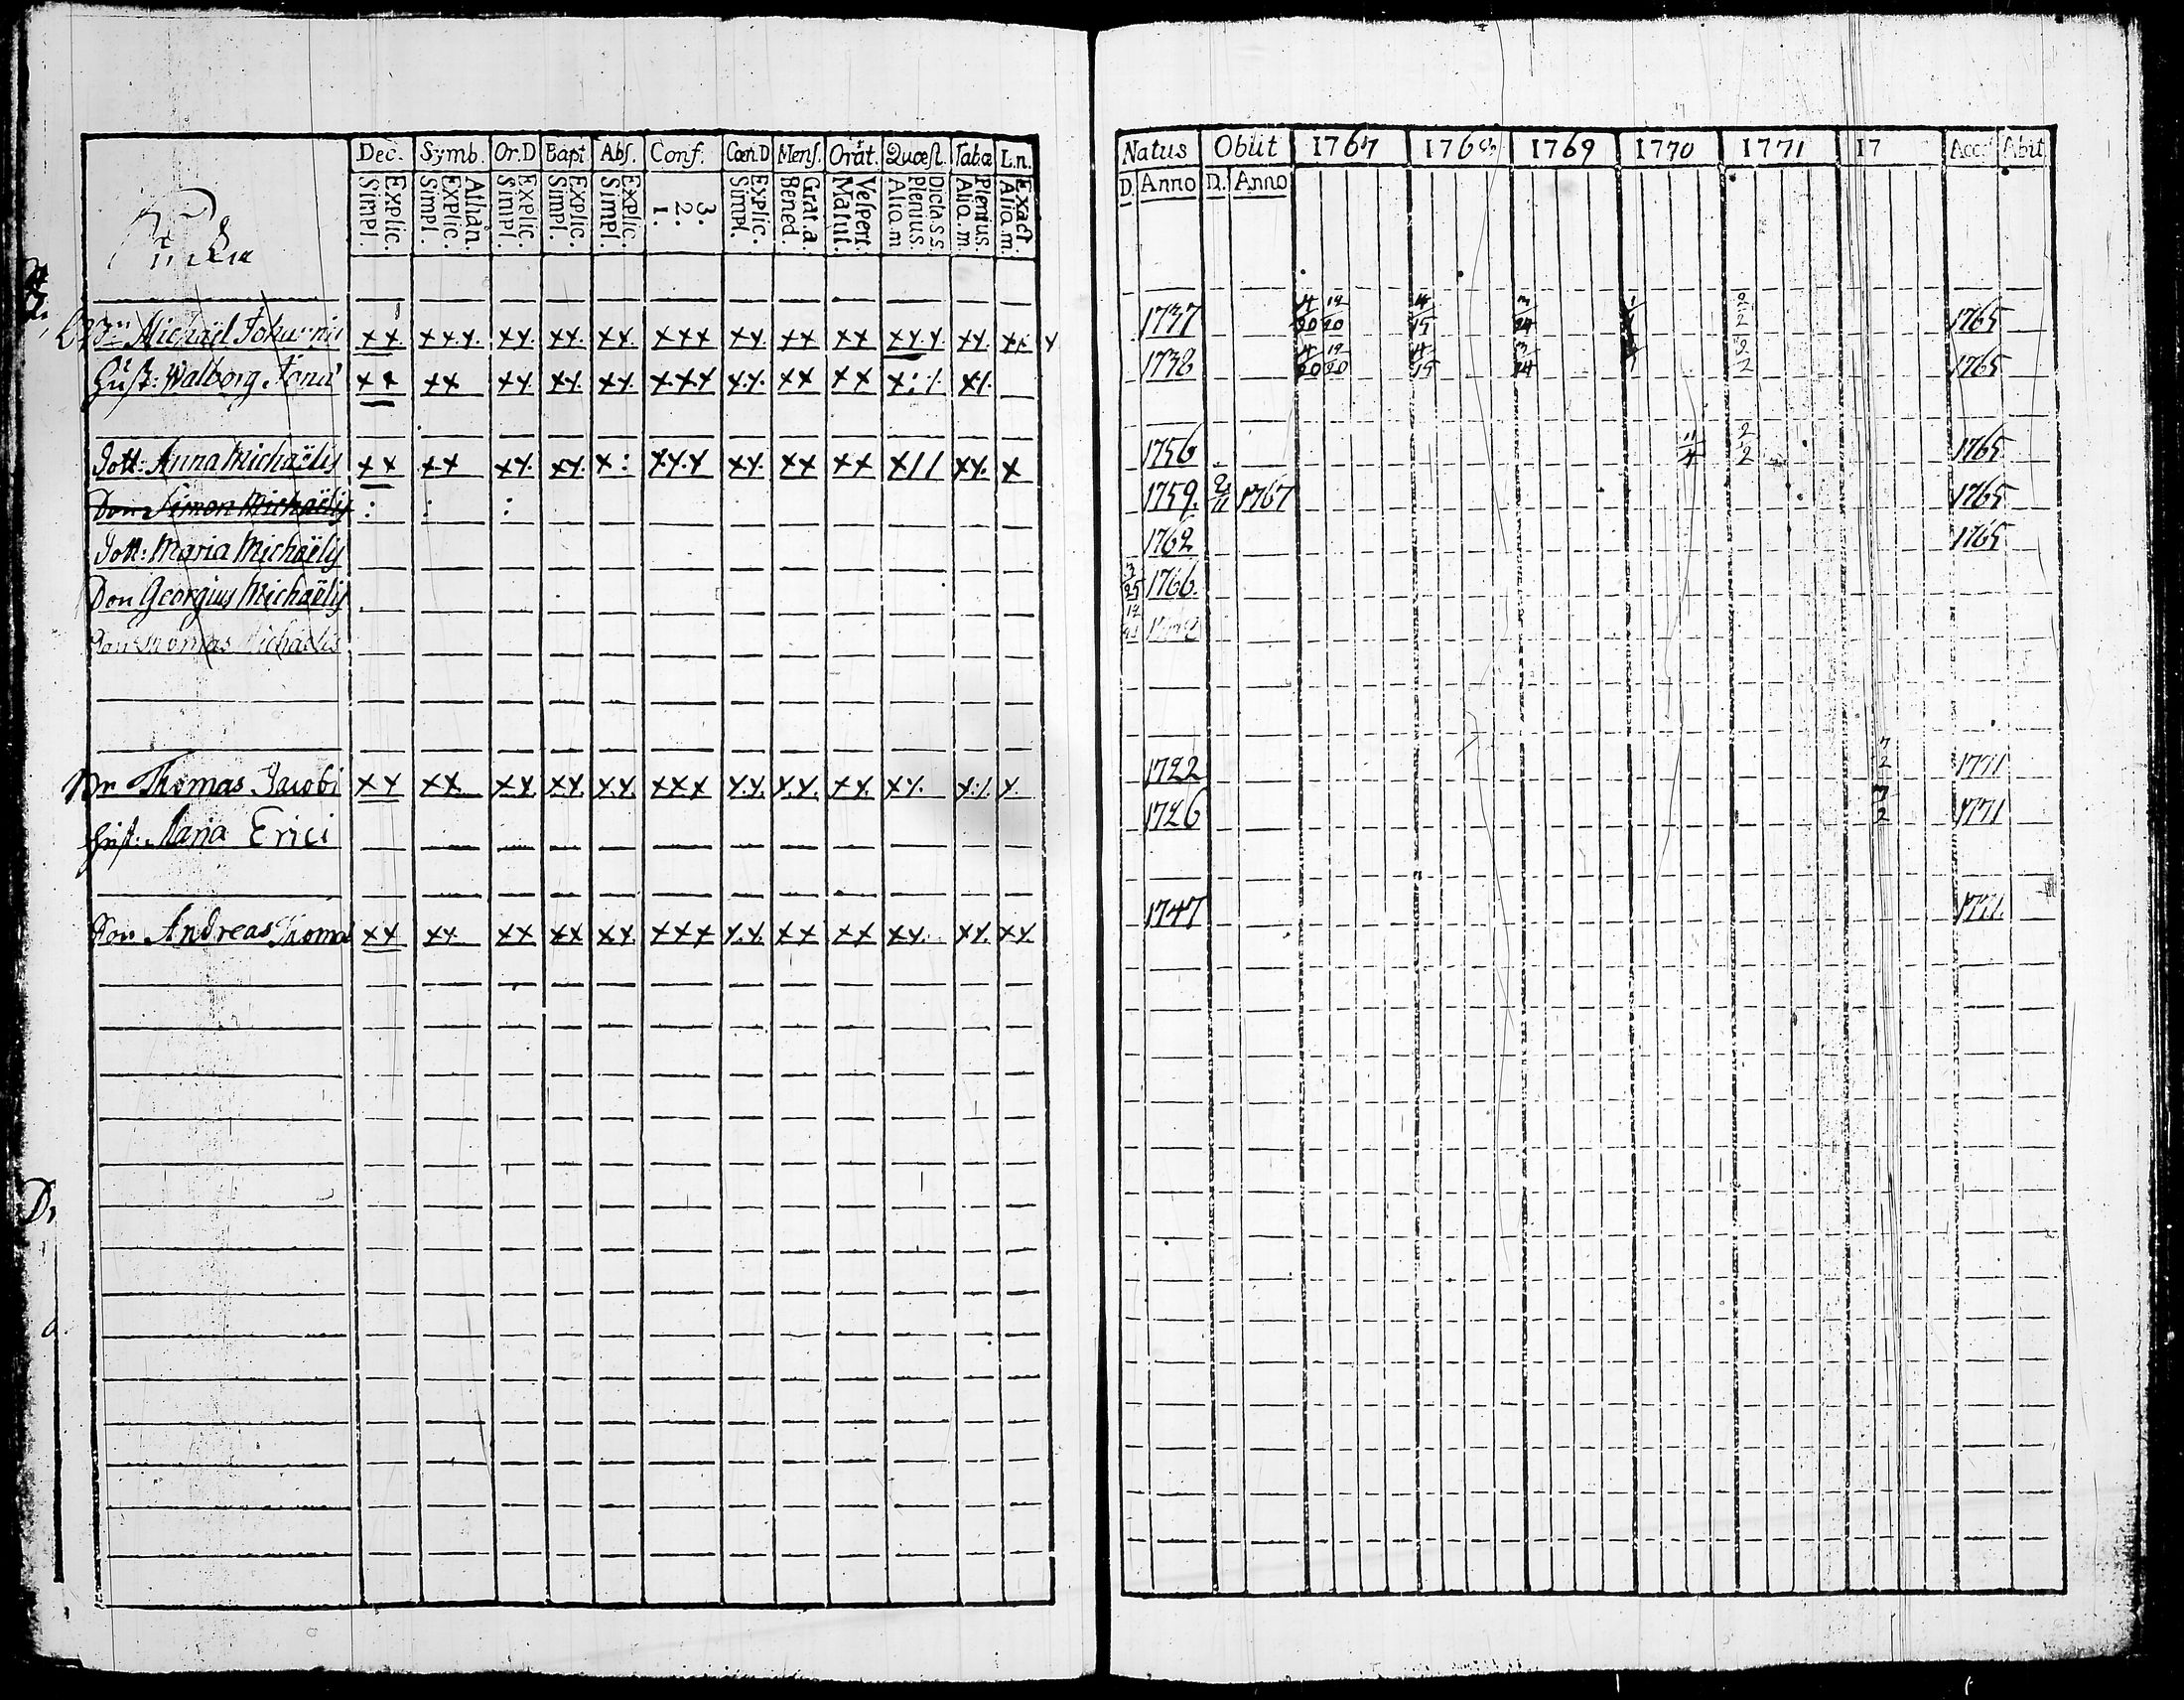 Dec. Symb. Or.D Bapt Abs. Conf. Cœn.D Mens. Orāt. Quæst. Tabæ L.n.
Simpl. Explic. Simpl. Explic. Athan. Simpl. Explic. Simpl. Explic. Simpl. Explic. 1. 2. 3. Simpl. Explic. Bened. Grat.a. Matut. Vespert. Aliq.m Plenius. Dicta s.s. Aliq.m. Plenius. Aliq.m. Exact
Michaël Johannis xx xxx. xx. xx. xx. xxx xx. xx xx xx.x. xx. xx x
Hust: Walborg xx xx xx. xx. xx. xxx x.x. xx xx x:/. x/.
Dott: Anna Michaëlis xx xx xx. xx. x: xx.x xx. xx xx x// xx. x
Son Simon Michaëlis : : :
Dott: Maria Michaëlis
Son Georgius Michaëlis
Son Thomas Michaelis
Thomas Jacobi xx xx. xx xx. x.x xxx x.x. x.x. xx. xx. x:/. x.
Hust: Maria Erici
Son Andreas Thomæ xx xx. xx xx xx. xxx x.x. xx xx xx. xx. xx.
D.
Natus Obiit 1767 1768 1769 1770 1771 17 Acc. Abit
D. Anno D. Anno
1737 4/20 19/20 4/15 3/24 2/2 1765
1738 4/20 19/20 4/15 3/24 2/2 1765
1756 11/4 2/2 1765
1759. 2/11 1767 1765
1762 1765
3/25 1766.
1722 7/2 1771
1726 7/2 1771
1747 1771.